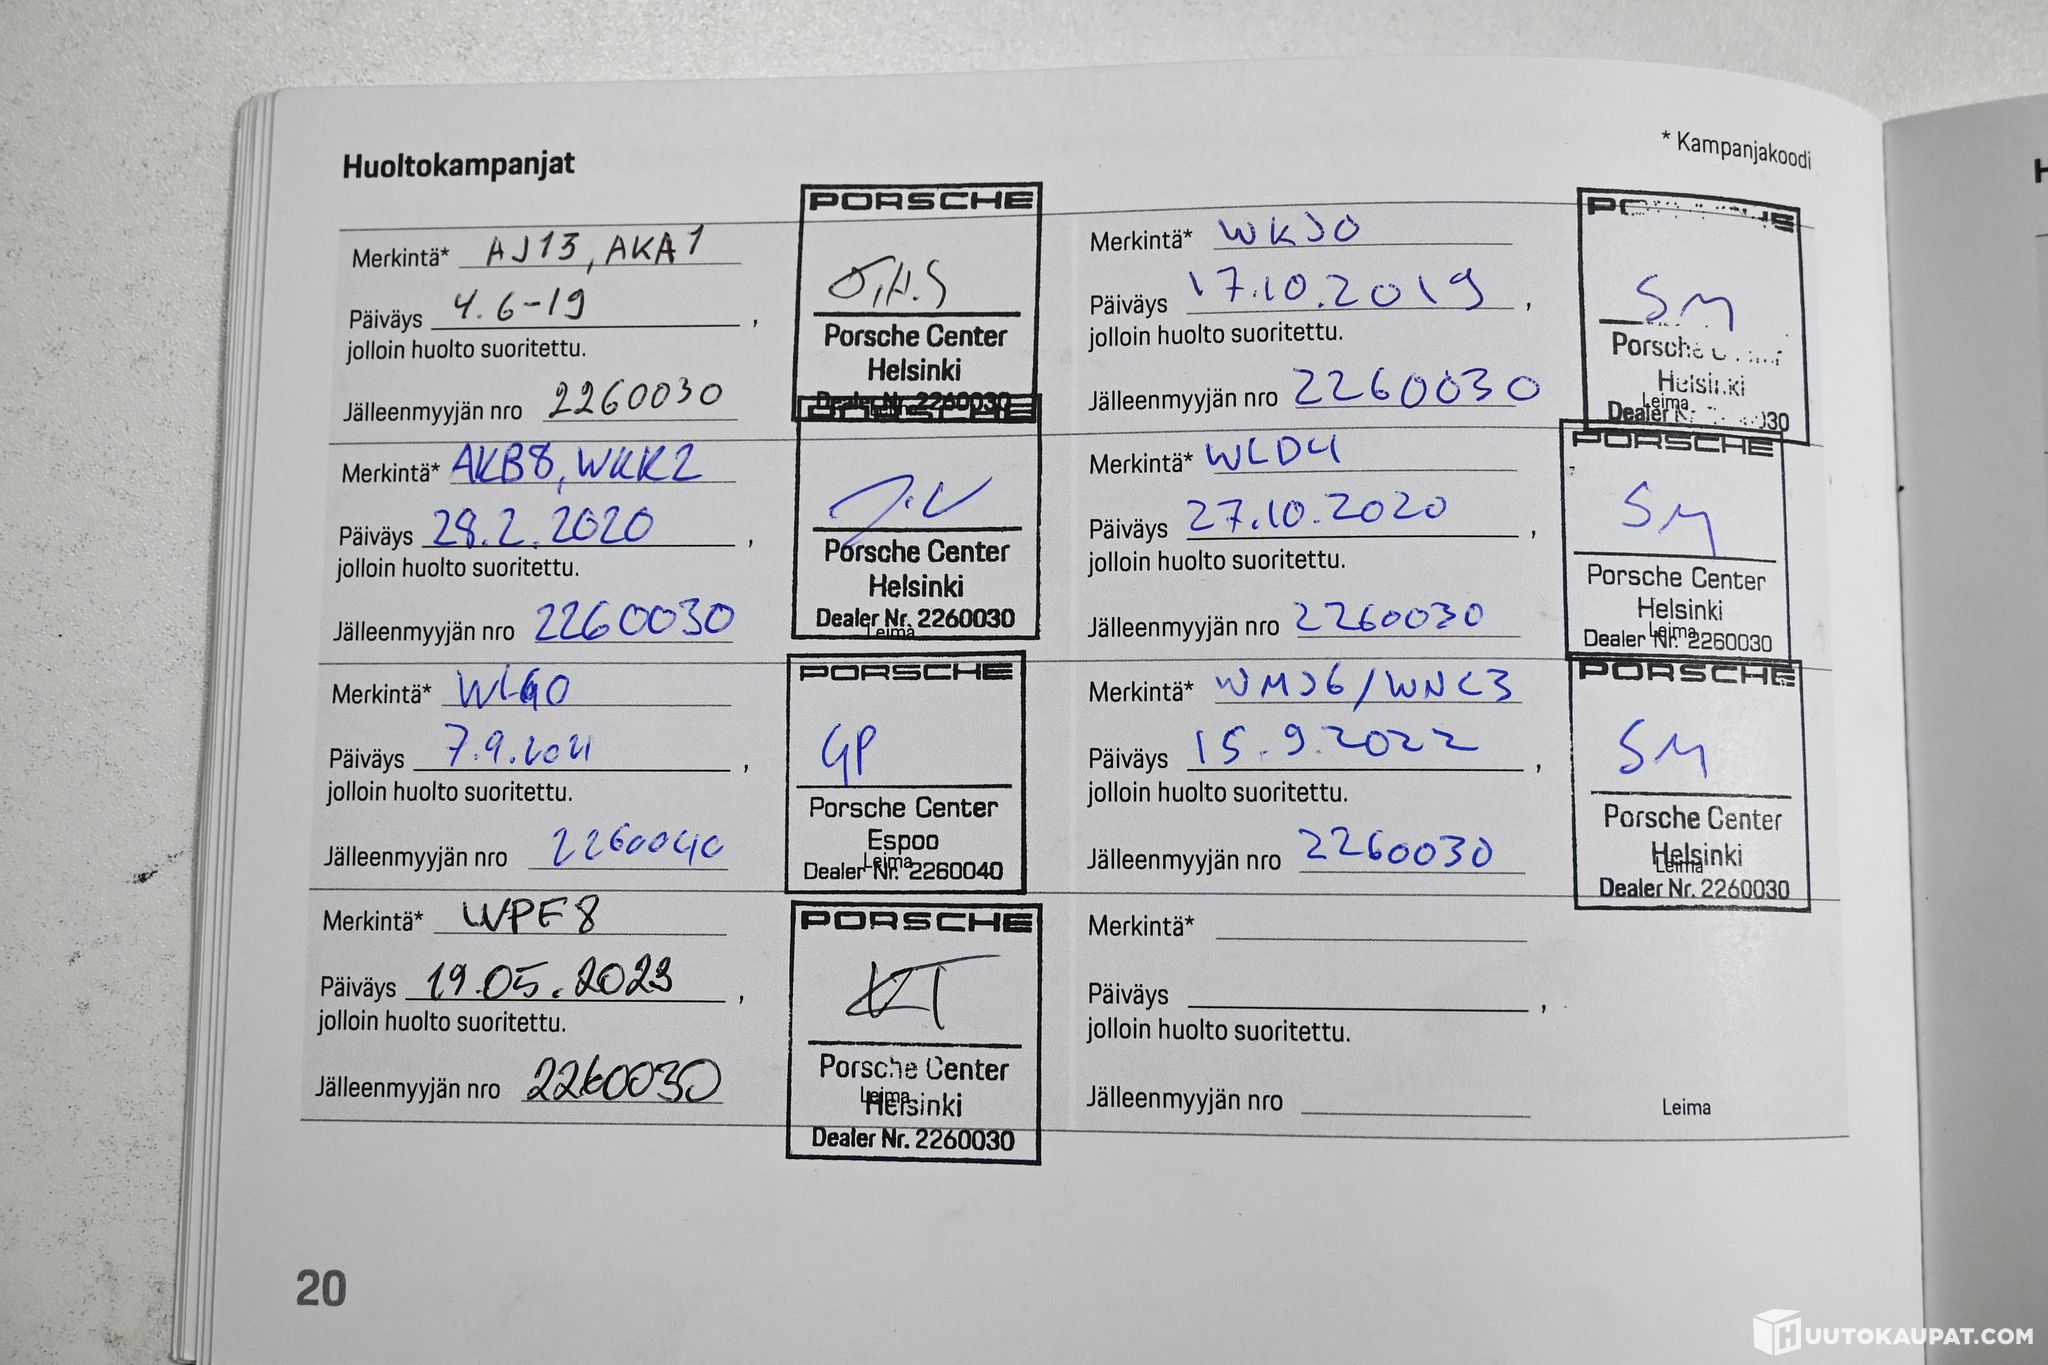 * Kampanjakoodi
Huoltokampanjat
Merkintä* AJ13, AKA1
Päiväys 4.6-19 ,
jolloin huolto suoritettu.
Jälleenmyyjän nro 2260030
PORSCHE
Porsche Center
Helsinki
Dealer Nr. 2260030
Merkintä* WKJ0
Päiväys 17.10.2019 ,
jolloin huolto suoritettu.
Jälleenmyyjän nro 2260030
SM
Porsche
Helsinki
Leima
Dealer
Merkintä* AKB8, WKK2
Päiväys 28.2.2020 ,
jolloin huolto suoritettu.
Jälleenmyyjän nro 2260030
Porsche Center
Helsinki
Dealer Nr. 2260030
Leima
Merkintä* WLD4
Päiväys 27.10.2020 ,
jolloin huolto suoritettu.
Jälleenmyyjän nro 2260030
PORSCHE
SM
Porsche Center
Helsinki
Leima
Dealer Nr. 2260030
Merkintä*
Päiväys 7.9.2021 ,
jolloin huolto suoritettu.
Jälleenmyyjän nro 2260040
PORSCHE
GP
Porsche Center
Espoo
Leima
Dealer Nr. 2260040
Merkintä* WMJ6/WNC3
Päiväys 15.9.2022 ,
jolloin huolto suoritettu.
Jälleenmyyjän nro 2260030
PORSCHE
SM
Porsche Center
Helsinki
Leima
Dealer Nr. 2260030
Merkintä* WPF8
Päiväys 19.05.2023 ,
jolloin huolto suoritettu.
Jälleenmyyjän nro 2260030
PORSCHE
KT
Porsche Center
Leima
Helsinki
Dealer Nr. 2260030
Merkintä*
Päiväys ,
jolloin huolto suoritettu.
Jälleenmyyjän nro
Leima
20
HUUTOKAUPAT.COM